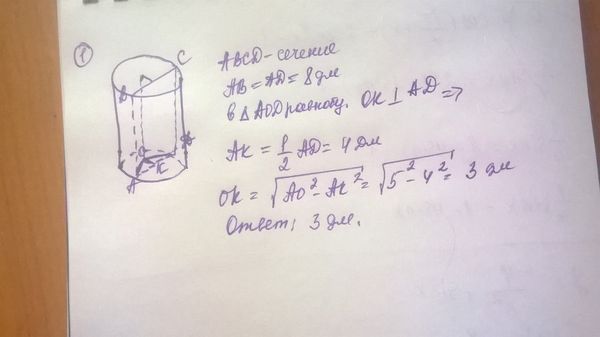 1
ABCD - сечение
AB = AD = 8 дм
В △ AOD равнобу. OK ⊥ AD =>
AK = 1/2 AD = 4 дм
OK = √(AO² - AK²) = √(5² - 4²) = 3 дм
Ответ: 3 дм.
C
B
O
K
A